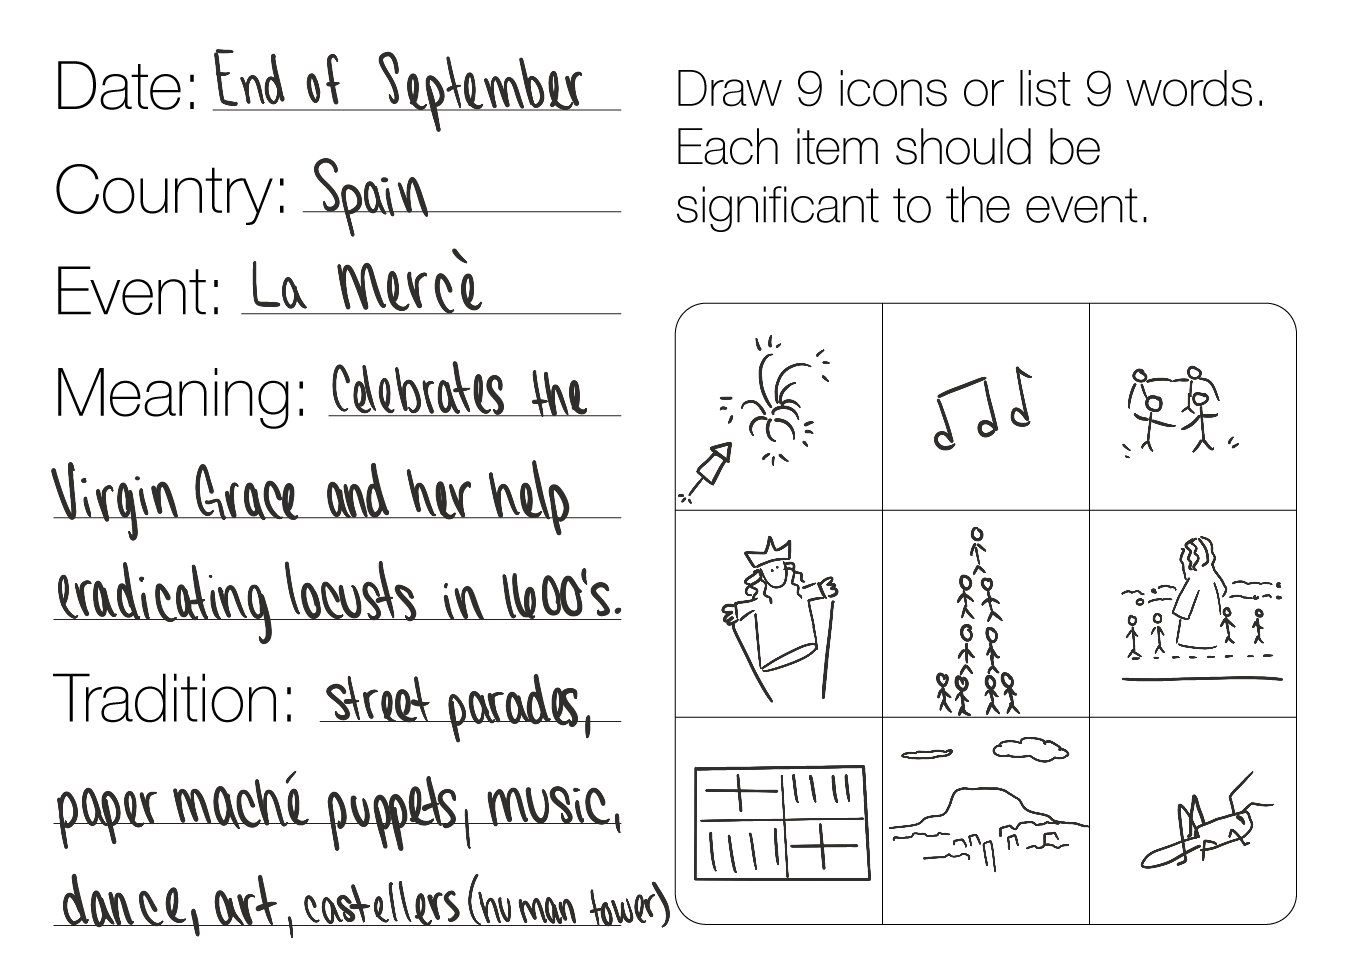 Date: End of September
Country: Spain
Event: La Mercè
Meaning: Celebrates the
Virgin Grace and her help
eradicating locusts in 1600's.
Tradition: street parades,
paper maché puppets, music,
dance, art, castellers (human tower)
Draw 9 icons or list 9 words.
Each item should be
significant to the event.